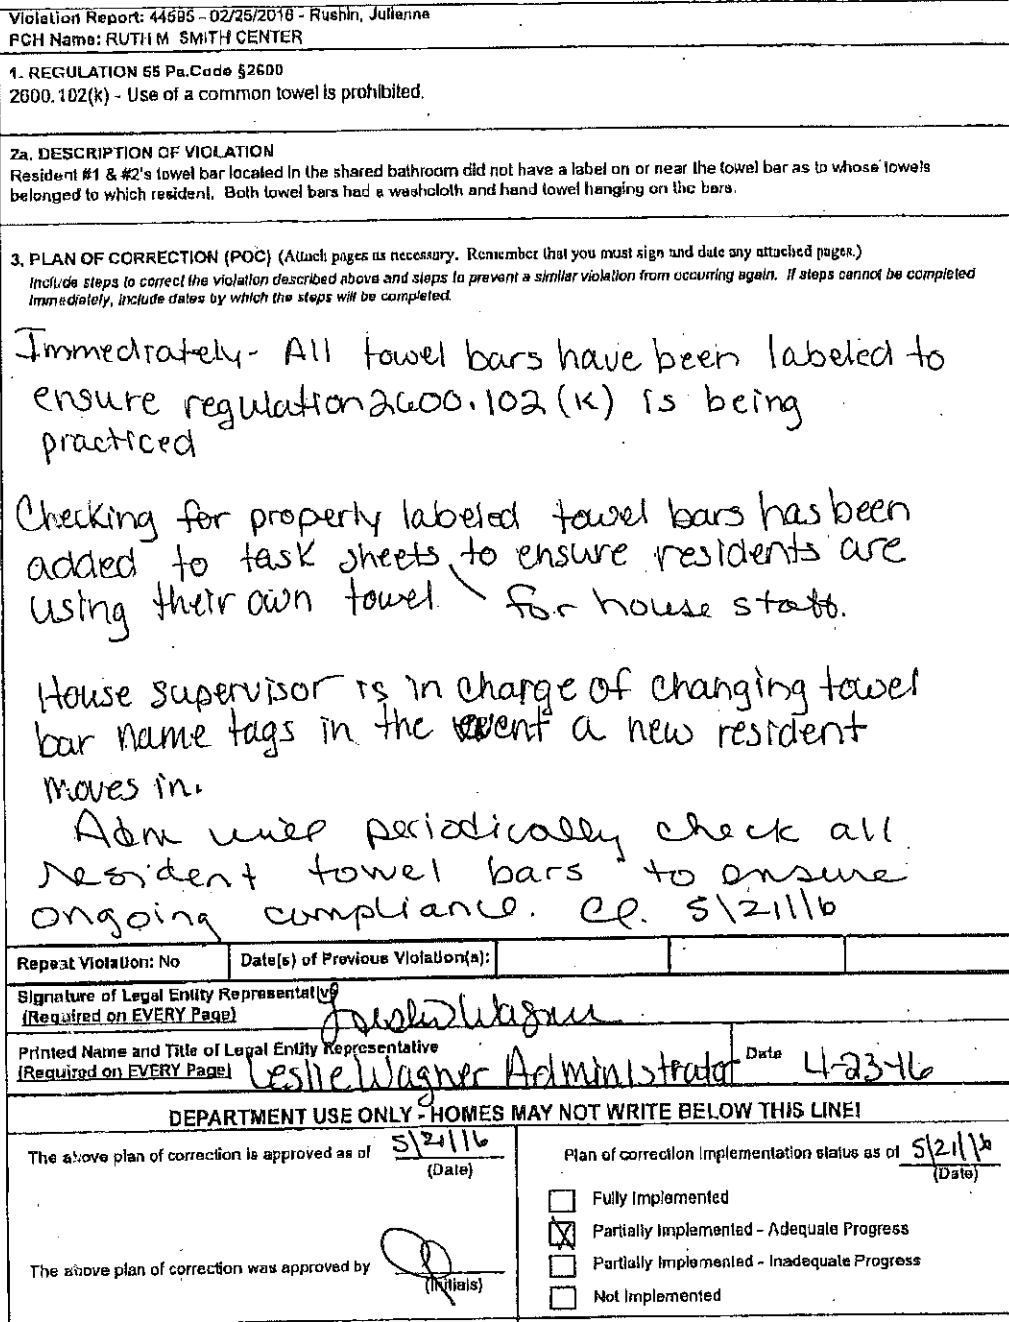 Violation Report: 44595 - 02/25/2016 - Rushin, Julienne
PCH Name: RUTH M SMITH CENTER
1. REGULATION 55 Pa.Code §2600
2600.102(k) - Use of a common towel is prohibited.
2a. DESCRIPTION OF VIOLATION
Resident #1 & #2's towel bar located in the shared bathroom did not have a label on or near the towel bar as to whose towels
belonged to which resident. Both towel bars had a washcloth and hand towel hanging on the bars.
3. PLAN OF CORRECTION (POC) (Attach pages as necessary. Remember that you must sign and date any attached pages.)
Include steps to correct the violation described above and steps to prevent a similar violation from occurring again. If steps cannot be completed
immediately, include dates by which the steps will be completed.
Immediately- All towel bars have been labeled to
ensure regulation 2600.102 (K) is being
practiced
Checking for properly labeled towel bars has been
added to task sheets, to ensure residents are
using their own towel \ for house staff.
House supervisor is in charge of changing towel
bar name tags in the event a new resident
moves in.
Adm will periodically check all
resident towel bars to ensure
ongoing compliance. 5\21\16
Repeat Violation: No
Date(s) of Previous Violation(s):
Signature of Legal Entity Representative
(Required on EVERY Page)
Leslie Wagner
Printed Name and Title of Legal Entity Representative
(Required on EVERY Page)
Leslie Wagner Administrator
Date 4-23-16
DEPARTMENT USE ONLY - HOMES MAY NOT WRITE BELOW THIS LINE!
The above plan of correction is approved as of 5\21\16
(Date)
The above plan of correction was approved by
(Initials)
Plan of correction implementation status as of 5\21\16
(Date)
Fully Implemented
X Partially Implemented - Adequate Progress
Partially Implemented - Inadequate Progress
Not Implemented